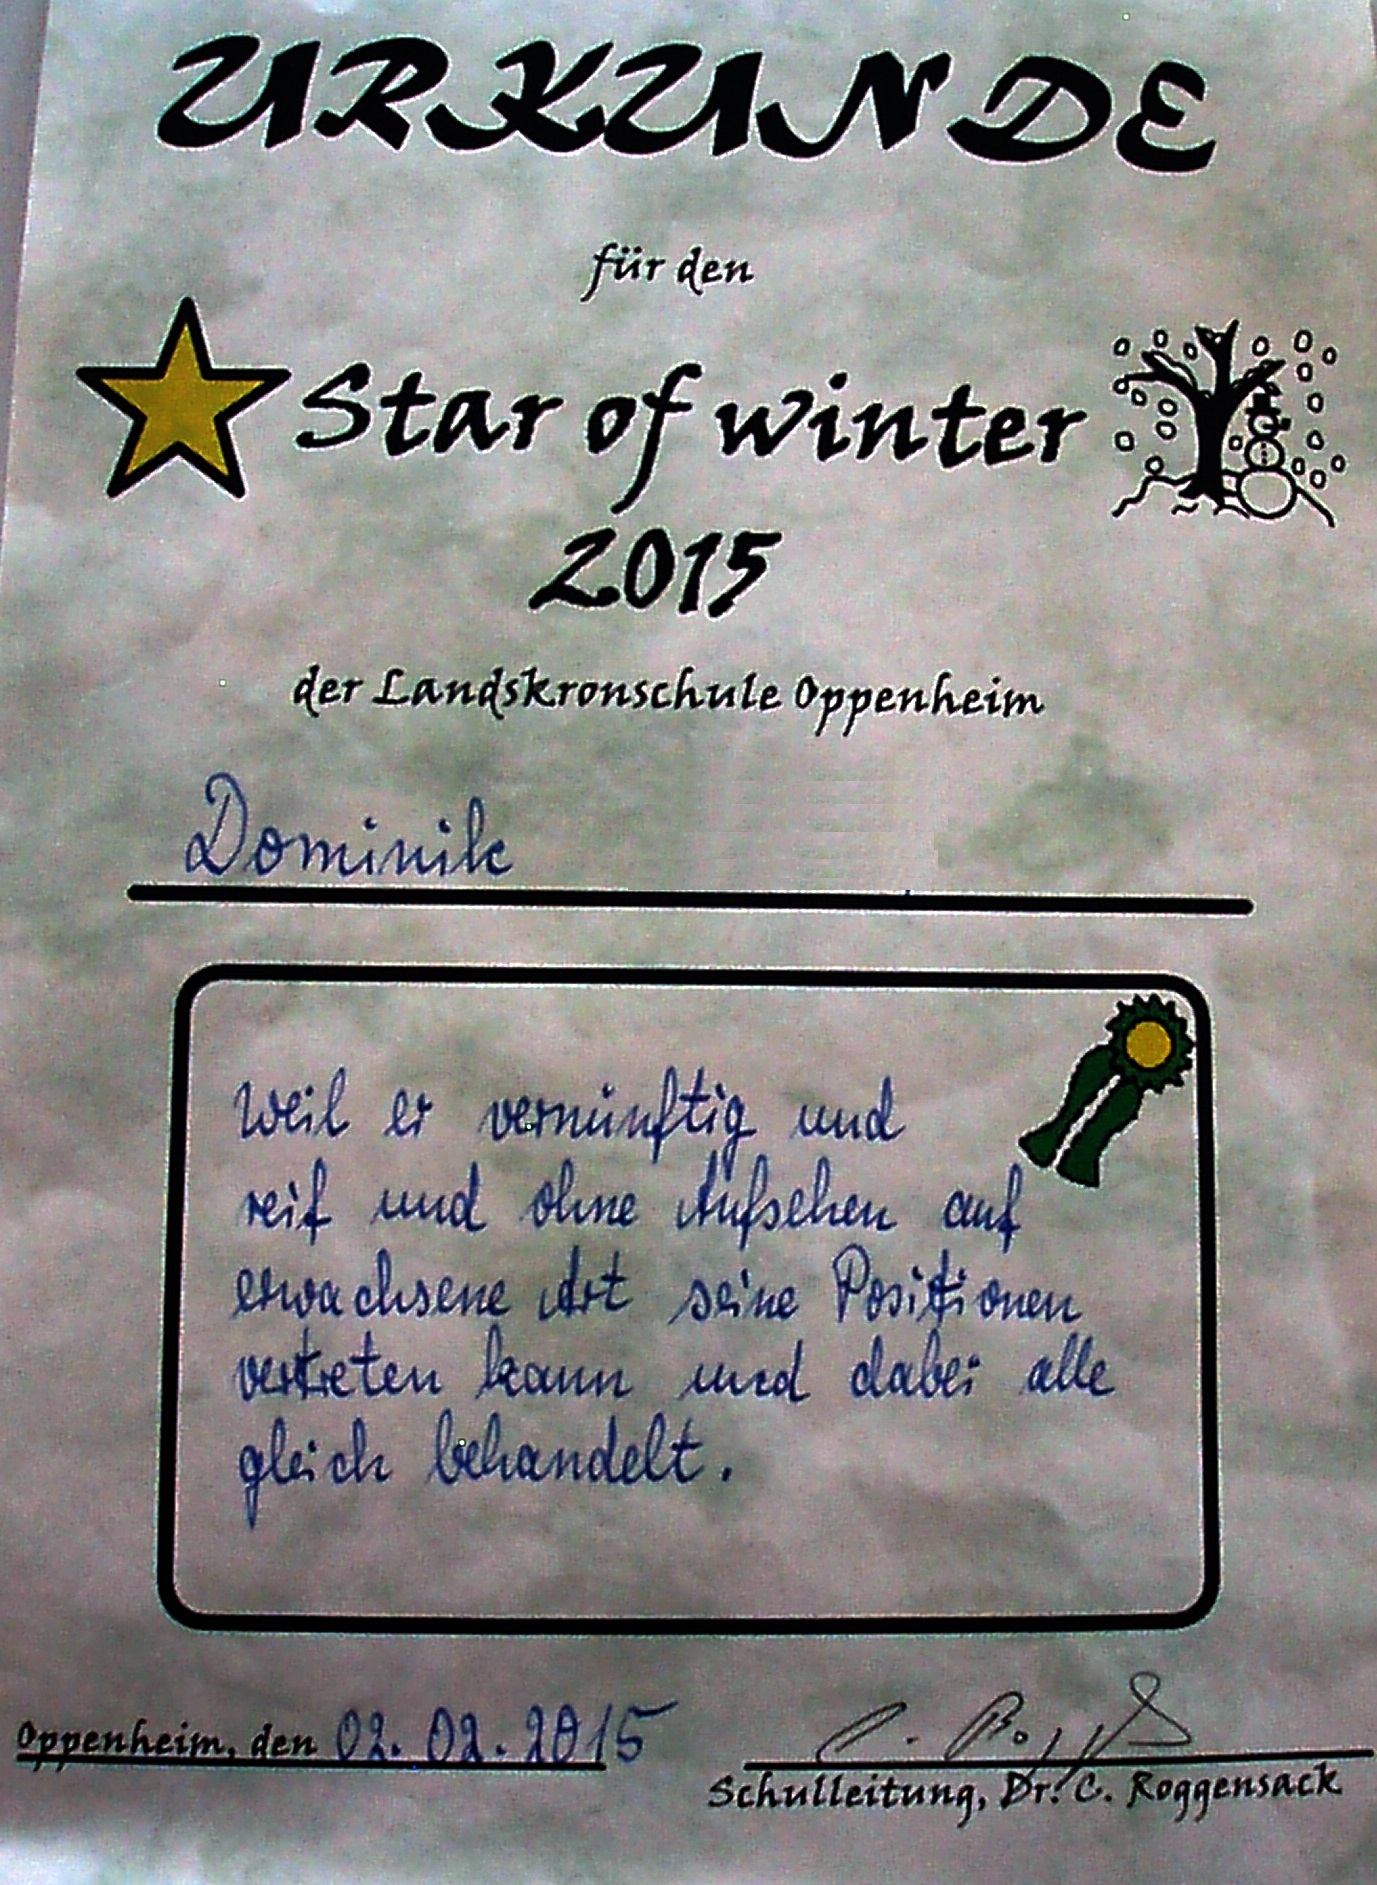 URKUNDE
für den
Star of winter
2015
der Landskronschule Oppenheim
Dominik
Weil er vernünftig und
reif und ohne Aufsehen auf
erwachsene Art seine Positionen
vertreten kann und dabei alle
gleich behandelt.
Oppenheim, den 02.02.2015
Schulleitung, Dr. C. Roggensack